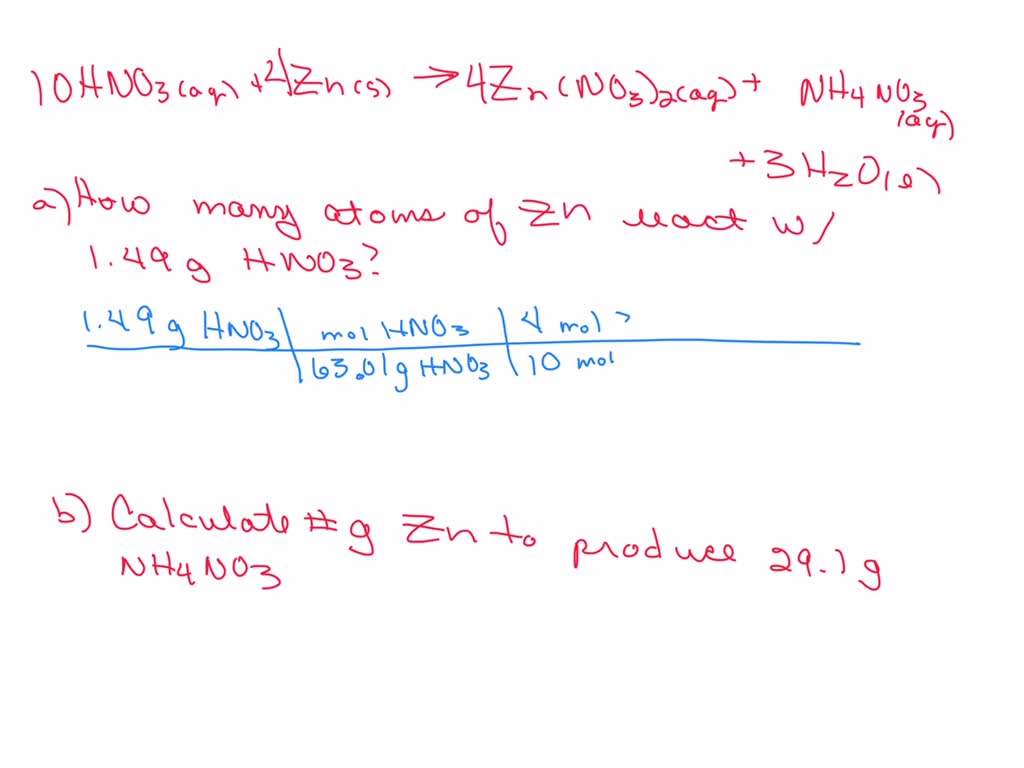 10HNO3(aq) + 4Zn(s) → 4Zn(NO3)2(aq) + NH4NO3(aq)
+ 3H2O(l)
a) How many atoms of Zn react w/
1.49 g HNO3?
1.49 g HNO3 | mol HNO3 | 4 mol
63.01g HNO3 | 10 mol
b) Calculate # g Zn to produce 29.1 g
NH4NO3